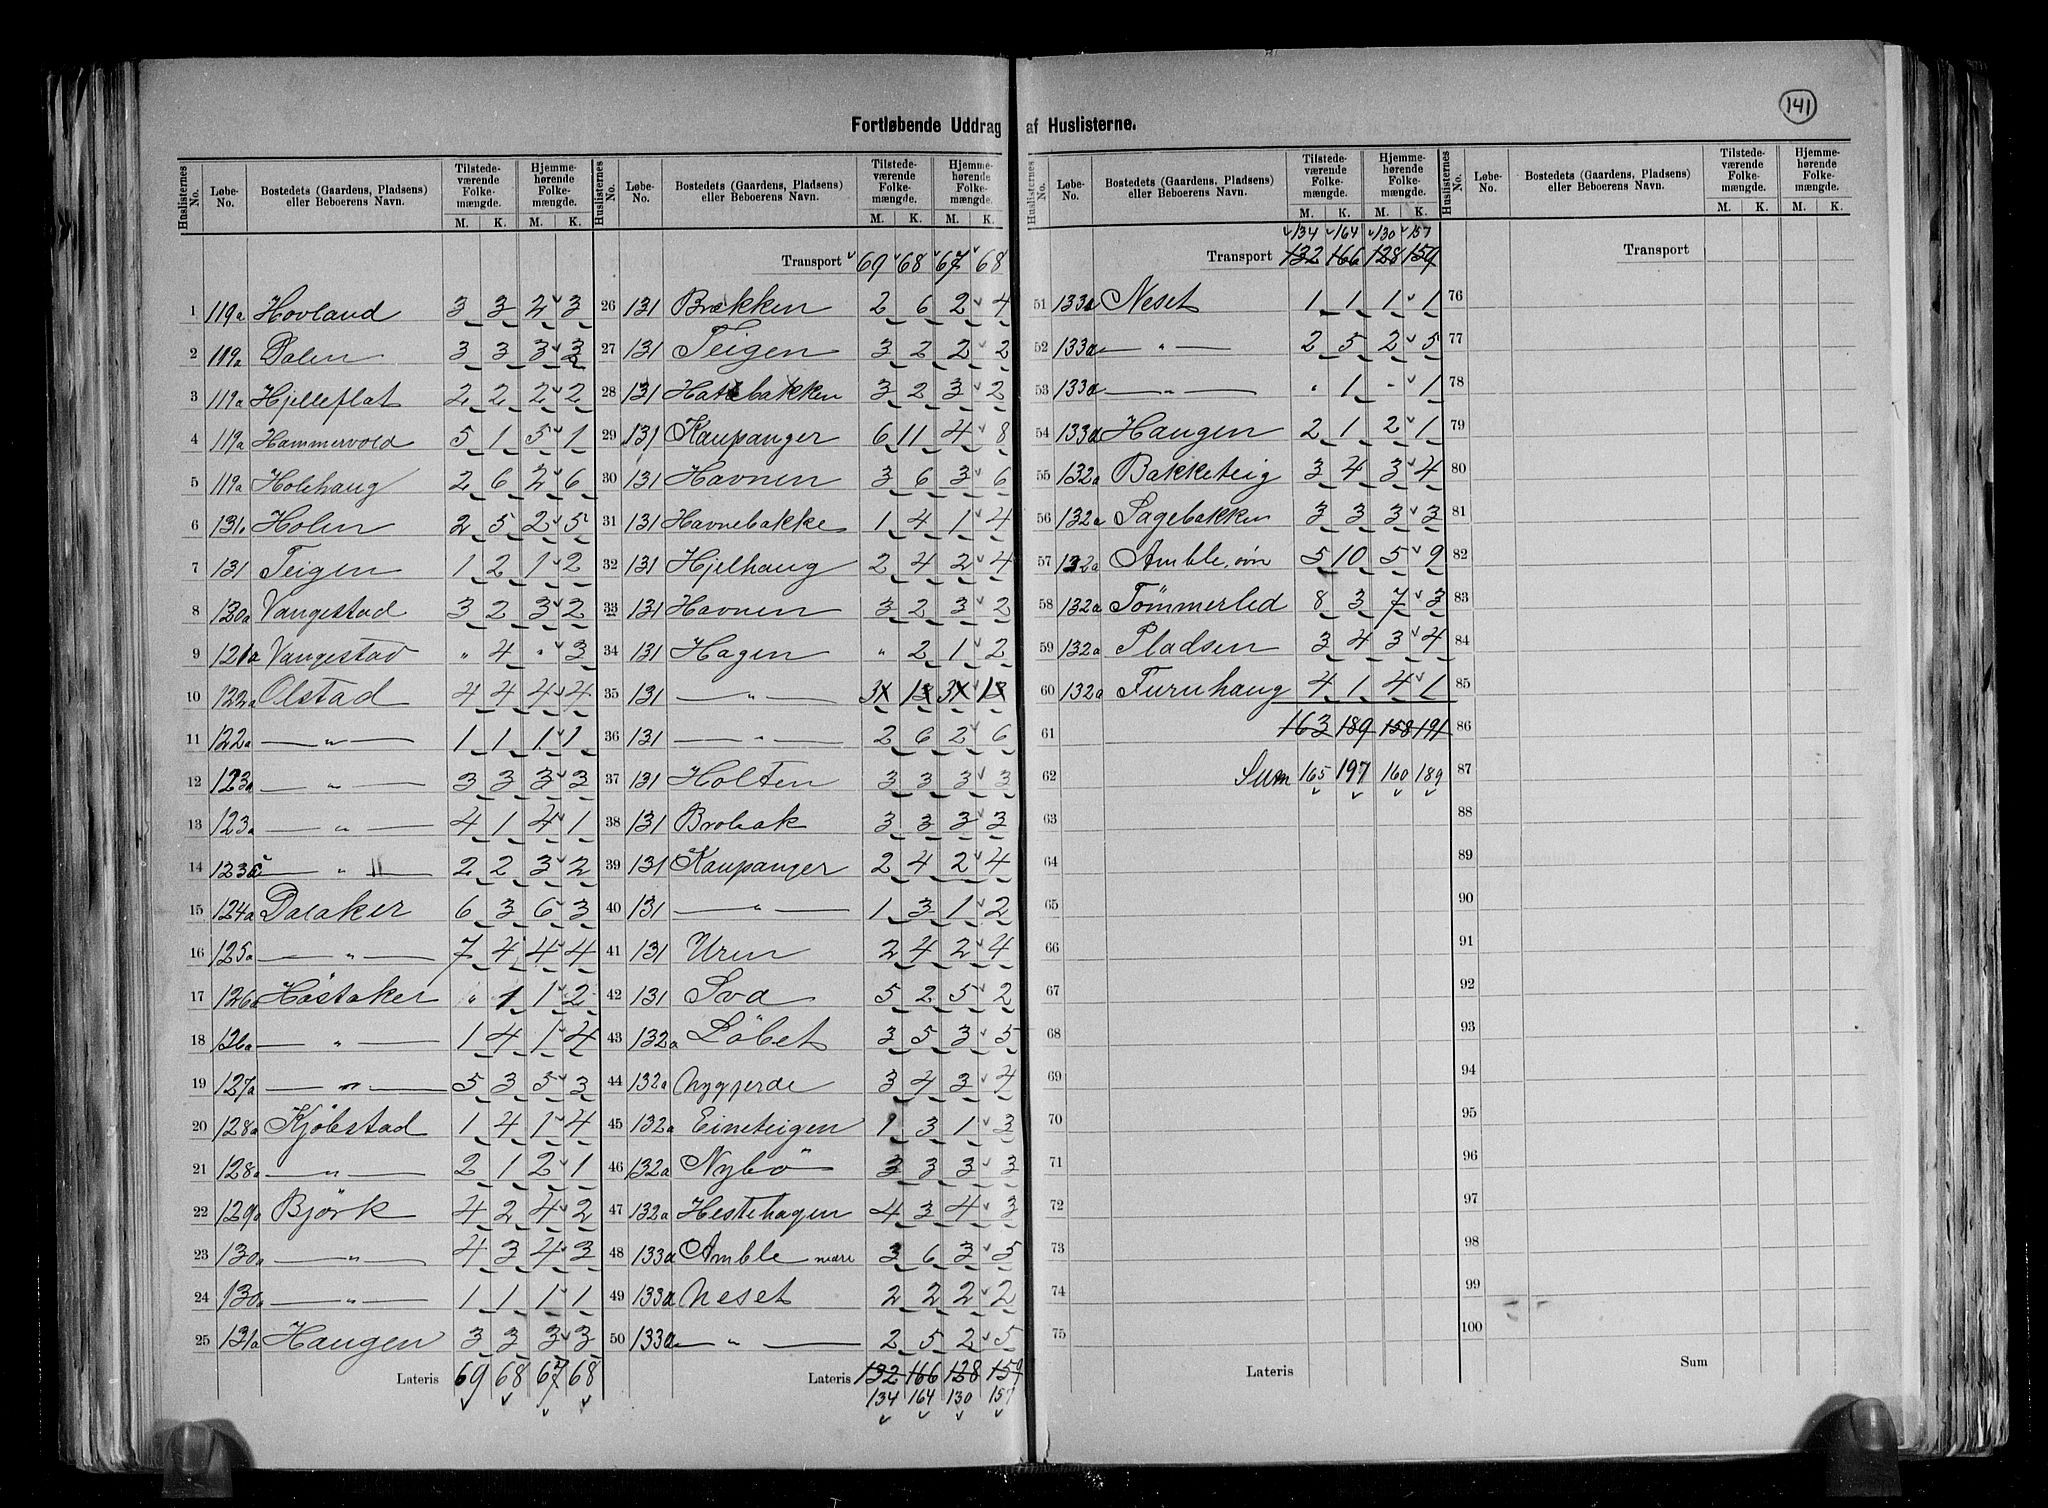 141
Fortløbende Uddrag af Huslisterne.
Huslisternes No. | Løbe-No. | Bostedets (Gaardens, Pladsens) eller Beboerens Navn. | Tilstedeværende Folkemængde. M. K. | Hjemmehørende Folkemængde. M. K.
1 119a Hovland 3 3 2 3
2 119a Dalen 3 3 3 3
3 119a Hjelleflat 2 2 2 2
4 119a Hammervold 5 1 5 1
5 119a Holehaug 2 6 2 6
6 131. Holen 2 5 2 5
7 131 Teigen 1 2 1 2
8 120a Vangestad 3 2 3 2
9 121a Vangestad " 4 " 3
10 122a Olstad 4 4 4 4
11 122a — " — 1 1 1 1
12 123a — " — 3 3 3 3
13 123a — " — 4 1 4 1
14 123a — " — 2 2 3 2
15 124a Dalaker 6 3 6 3
16 125a — " — 7 4 4 4
17 126a Høstaker " 1 1 2
18 126a — " — 1 4 1 4
19 127a — " — 5 3 5 3
20 128a Kjöbstad 1 4 1 4
21 128a — " — 2 1 2 1
22 129a Björk 4 2 4 2
23 130a — " — 4 3 4 3
24 130a — " — 1 1 1 1
25 131a Haugen 3 3 3 3
Lateris 69 68 67 68
Huslisternes No. | Løbe-No. | Bostedets (Gaardens, Pladsens) eller Beboerens Navn. | Tilstedeværende Folkemængde. M. K. | Hjemmehørende Folkemængde. M. K.
Transport 69 68 67 68
26 131 Brækken 2 6 2 4
27 131 Teigen 3 2 2 2
28 131 Hattebakken 3 2 3 2
29 131 Kaupanger 6 11 4 8
30 131 Havnen 3 6 3 6
31 131 Havnebakke 1 4 1 4
32 131 Hjelhaug 2 4 2 4
33 131 Havnen 3 2 3 2
34 131 Hagen " 2 1 2
35 131 — " —
36 131 — " — 2 6 2 6
37 131 Holten 3 3 3 3
38 131 Brobak 3 3 3 3
39 131 Kaupanger 2 4 2 4
40 131 — " — 1 3 1 2
41 131 Uren 2 4 2 4
42 131 Sva 5 2 5 2
43 132a Löbet 3 5 3 5
44 132a Nygjerde 3 4 3 4
45 132a Eineteigen 1 3 1 3
46 132a Nybö 3 3 3 3
47 132a Hestehagen 4 3 4 3
48 133a Amble nedre 3 6 3 5
49 133a Neset 2 2 2 2
50 133a — " — 2 5 2 5
Lateris 132 166 128 159
134 164 130 157
Huslisternes No. | Løbe-No. | Bostedets (Gaardens, Pladsens) eller Beboerens Navn. | Tilstedeværende Folkemængde. M. K. | Hjemmehørende Folkemængde. M. K.
134 164 130 157
Transport 132 166 128 159
51 133a Neset 1 1 1 1
52 133a — " — 2 5 2 5
53 133a — " — " 1 " 1
54 133a Haugen 2 1 2 1
55 132a Bakketeig 3 4 3 4
56 132a Sagebakken 3 3 3 3
57 132a Amble, øvr 5 10 5 9
58 132a Tömmerlid 8 3 7 3
59 132a Pladsen 3 4 3 4
60 132a Furuhaug 4 1 4 1
61 163 189 158 191
62 Sum 165 197 160 189
63
64
65
66
67
68
69
70
71
72
73
74
75
Lateris
Huslisternes No. | Løbe-No. | Bostedets (Gaardens, Pladsens) eller Beboerens Navn. | Tilstedeværende Folkemængde. M. K. | Hjemmehørende Folkemængde. M. K.
Transport
76
77
78
79
80
81
82
83
84
85
86
87
88
89
90
91
92
93
94
95
96
97
98
99
100
Sum